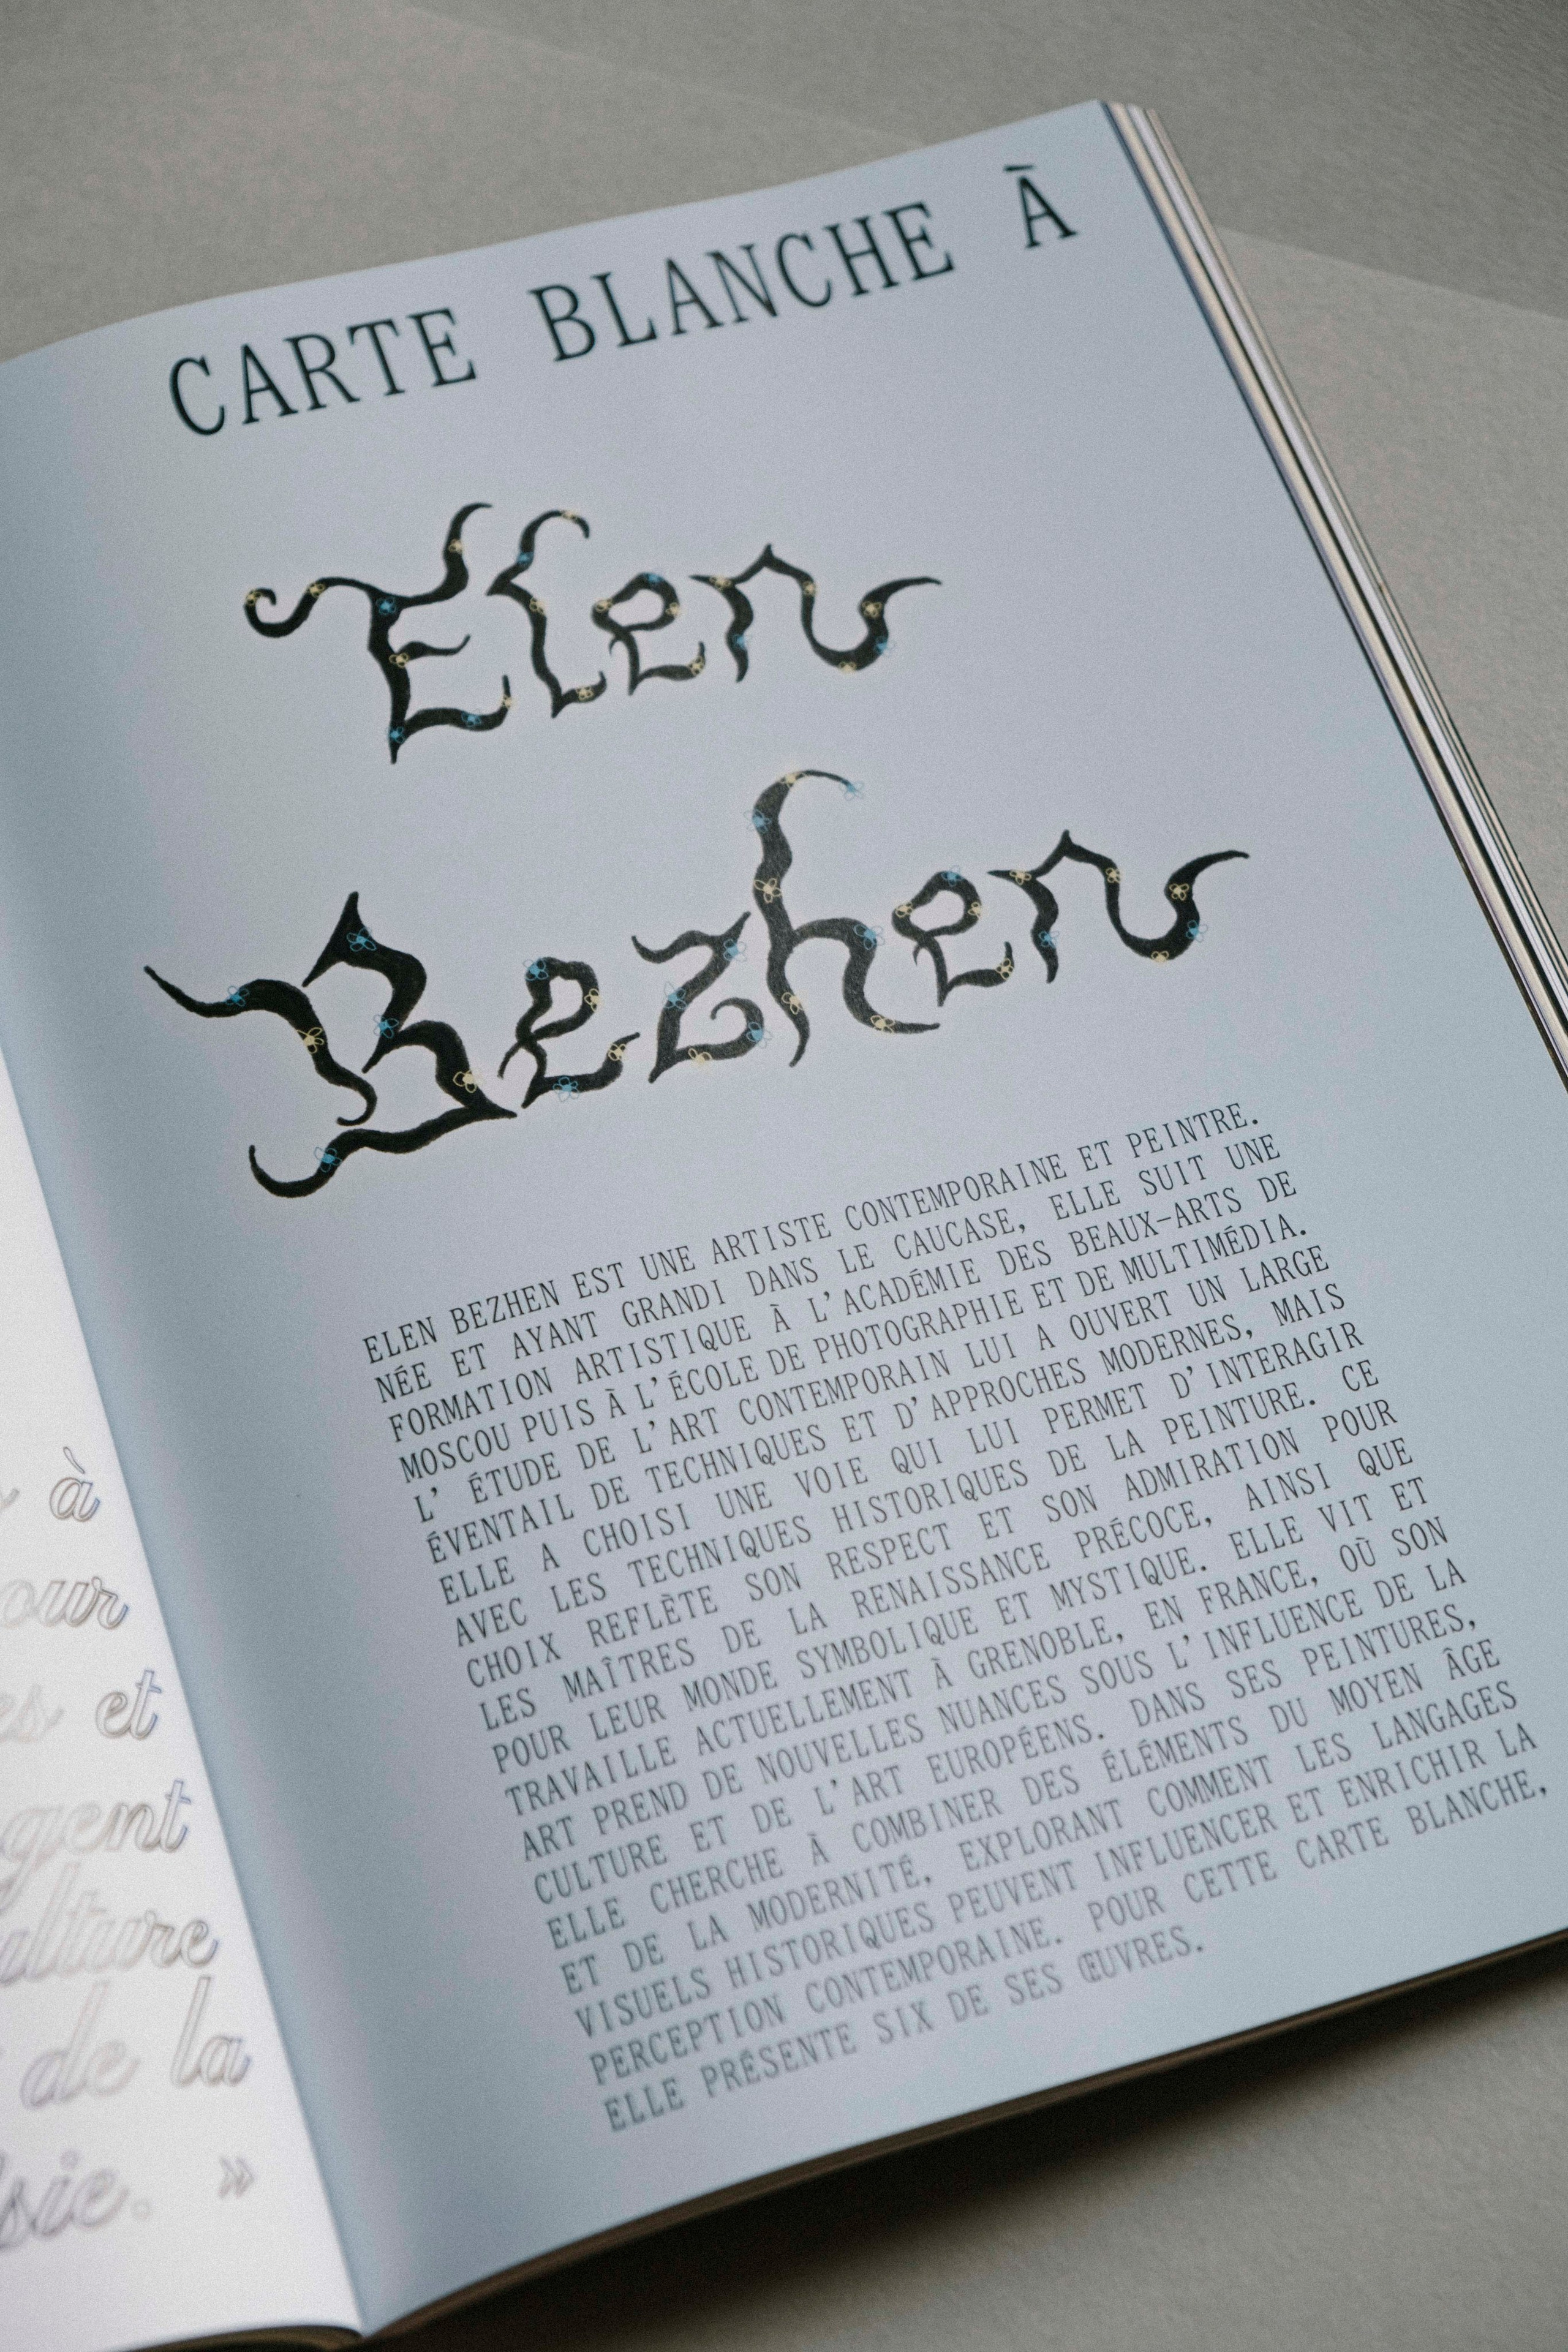 à
our
et
gent
de la
». 
CARTE BLANCHE À
Elen
Bezhen
ELEN BEZHEN EST UNE ARTISTE CONTEMPORAINE ET PEINTRE.
NÉE ET AYANT GRANDI DANS LE CAUCASE, ELLE SUIT UNE
FORMATION ARTISTIQUE À L'ACADÉMIE DES BEAUX-ARTS DE
MOSCOU PUIS À L'ÉCOLE DE PHOTOGRAPHIE ET DE MULTIMÉDIA.
L' ÉTUDE DE L'ART CONTEMPORAIN LUI A OUVERT UN LARGE
ÉVENTAIL DE TECHNIQUES ET D'APPROCHES MODERNES, MAIS
ELLE A CHOISI UNE VOIE QUI LUI PERMET D'INTERAGIR
AVEC LES TECHNIQUES HISTORIQUES DE LA PEINTURE. CE
CHOIX REFLÈTE SON RESPECT ET SON ADMIRATION POUR
LES MAÎTRES DE LA RENAISSANCE PRÉCOCE, AINSI QUE
POUR LEUR MONDE SYMBOLIQUE ET MYSTIQUE. ELLE VIT ET
TRAVAILLE ACTUELLEMENT À GRENOBLE, EN FRANCE, OÙ SON
ART PREND DE NOUVELLES NUANCES SOUS L'INFLUENCE DE LA
CULTURE ET DE L'ART EUROPÉENS. DANS SES PEINTURES,
ELLE CHERCHE À COMBINER DES ÉLÉMENTS DU MOYEN ÂGE
ET DE LA MODERNITÉ, EXPLORANT COMMENT LES LANGAGES
VISUELS HISTORIQUES PEUVENT INFLUENCER ET ENRICHIR LA
PERCEPTION CONTEMPORAINE. POUR CETTE CARTE BLANCHE,
ELLE PRÉSENTE SIX DE SES ŒUVRES.